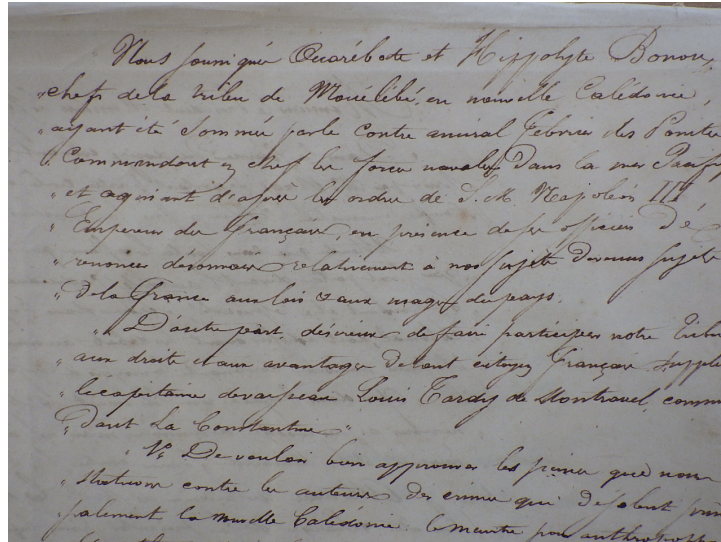 Nous soussignés Ouarébate et Hippolyte Bonou,
"chefs de la tribu de Mouélébé, en nouvelle Calédonie,
"ayant été sommés par le Contre amiral Febvrier des Pointes
"Commandant en chef les forces navales dans la mer Pacifi
"et agissant d'après les ordres de S. M. Napoléon III
"Empereur des Français, en présence de ses officiers de
"renoncer désormais relativement à nos sujets devenus sujets
"de la France aux lois & aux usages du pays.
"D'autre part, désireux de faire participer notre Tribu
"aux droits et aux avantages de tout citoyen français suppli
"le capitaine de vaisseau Louis Tardy de Montravel, comman
"dant La Constantine"
"1° De vouloir bien approuver les peines que nous
"statuons contre les auteurs des crimes qui désolent prin
"palement la nouvelle Calédonie le meurtre par anthropoph